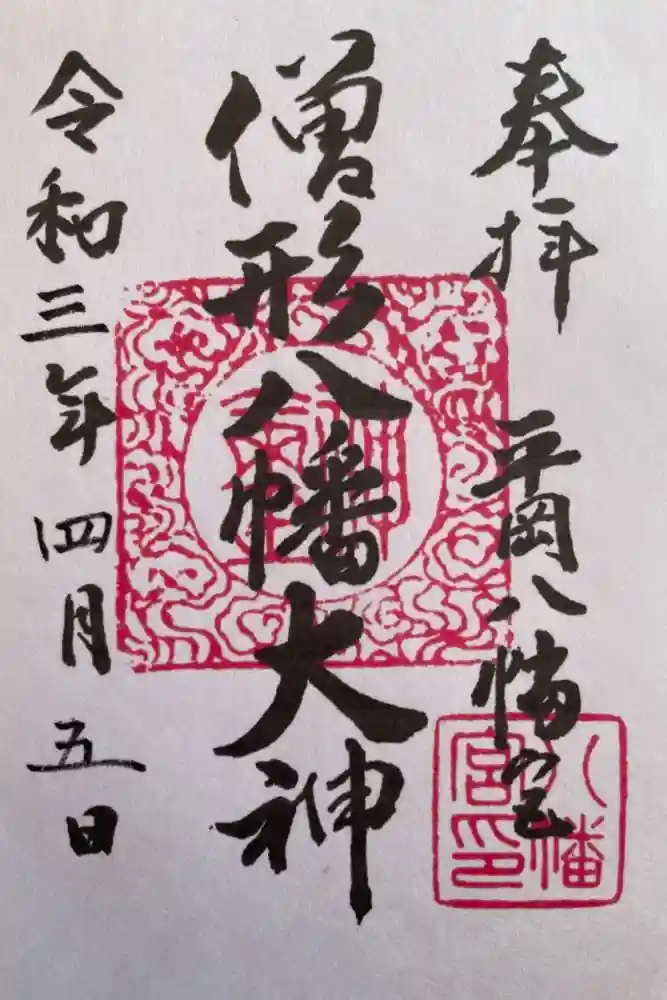 奉拝
平岡八幡宮
八幡宮印
僧形八幡大神
令和三年四月五日